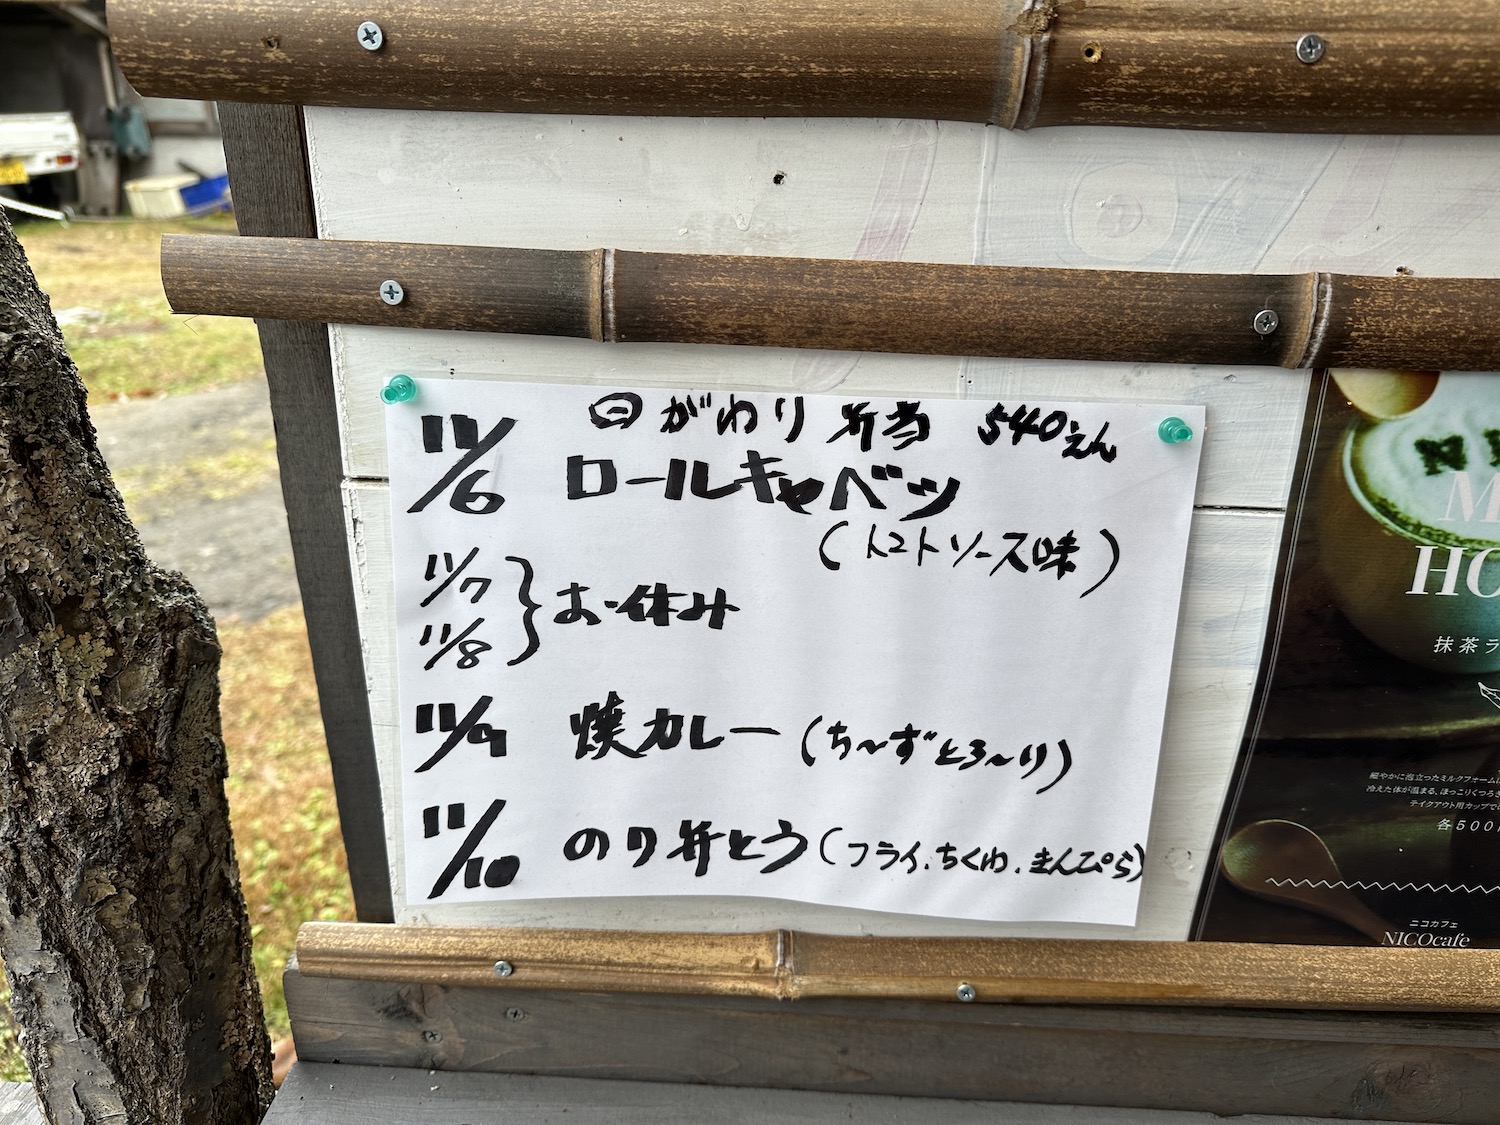 日がわり弁当 540えん
11/6 ロールキャベツ
(トマトソース味)
11/7
11/8 } お休み
11/9 焼カレー (ち〜ずとろ〜り)
11/10 のり弁とう (フライ.ちくわ.きんぴら)
M
HO
抹茶ラ
細やかに泡立ったミルクフォームに
冷えた体が温まる、ほっこりくつろぎ
テイクアウト用カップで
各500
ニコカフェ
NICOcafe